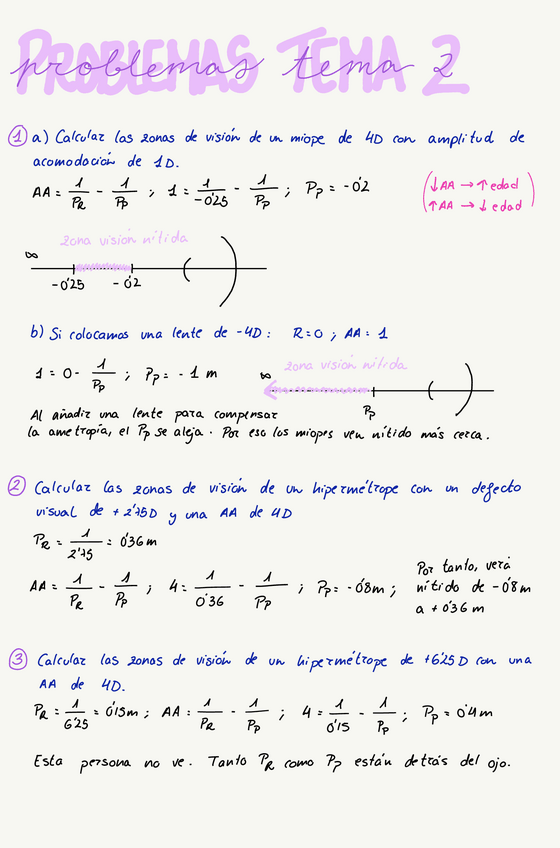 PROBLEMAS TEMA 2
problemas tema 2
1 a) Calcular las zonas de visión de un miope de 4D con amplitud de
acomodación de 1D.
AA = 1/PR - 1/Pp ; 1 = 1/-0'25 - 1/Pp ; Pp = -0'2
(↓AA → ↑edad
↑AA → ↓edad)
zona visión nítida
∞
-0'25 -0'2
b) Si colocamos una lente de -4D: R=0 ; AA = 1
1 = 0 - 1/Pp ; Pp = -1 m
zona visión nítida
∞
Pp
Al añadir una lente para compensar
la ametropía, el Pp se aleja. Por eso los miopes ven nítido más cerca.
2 Calcular las zonas de visión de un hipermétrope con un defecto
visual de +2'75D y una AA de 4D
PR = 1/2'75 = 0'36m
AA = 1/PR - 1/Pp ; 4 = 1/0'36 - 1/Pp ; Pp = -0'8m ;
Por tanto, verá
nítido de -0'8m
a +0'36 m
3 Calcular las zonas de visión de un hipermétrope de +6'25D con una
AA de 4D.
PR = 1/6'25 = 0'15m ; AA = 1/PR - 1/Pp ; 4 = 1/0'15 - 1/Pp ; Pp = 0'4m
Esta persona no ve. Tanto PR como Pp están detrás del ojo.